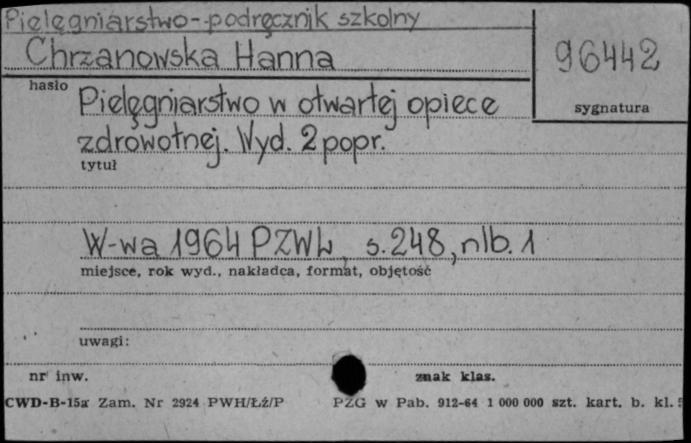 Pielęgniarstwo--podręcznik szkolny
Chrzanowska Hanna
96442
hasło
sygnatura
Pielęgniarstwo w otwartej opiece
zdrowotnej. Wyd. 2 popr.
tytuł
W-wa 1964 PZWL, s. 248, nlb. 1
miejsce, rok wyd., nakładca, format, objętość
uwagi:
nr inw.
znak klas.
CWD-B-15a Zam. Nr 2924 PWH/Łź/P
PZG w Pab. 912-64 1 000 000 szt. kart. b. kl.